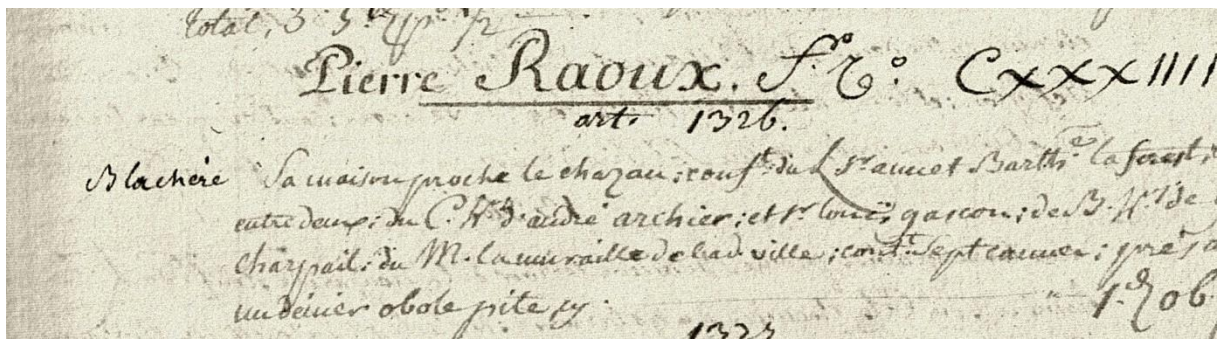 total, 3
Pierre Raoux. f.º rº. CxxxIIII
art. 1326.
Blachere Sa maison proche le chazau; conf.t du L. Sr. annet Barth.e la forest;
entre deux; du C. H.rs d'andré archier; et Sr. louis gascon; de B. H.rs de
charpail; du M. la muraille de lad. ville; cont.t Sept cannes; pres.
un denier obole pite cy. 1.d ob.
1327